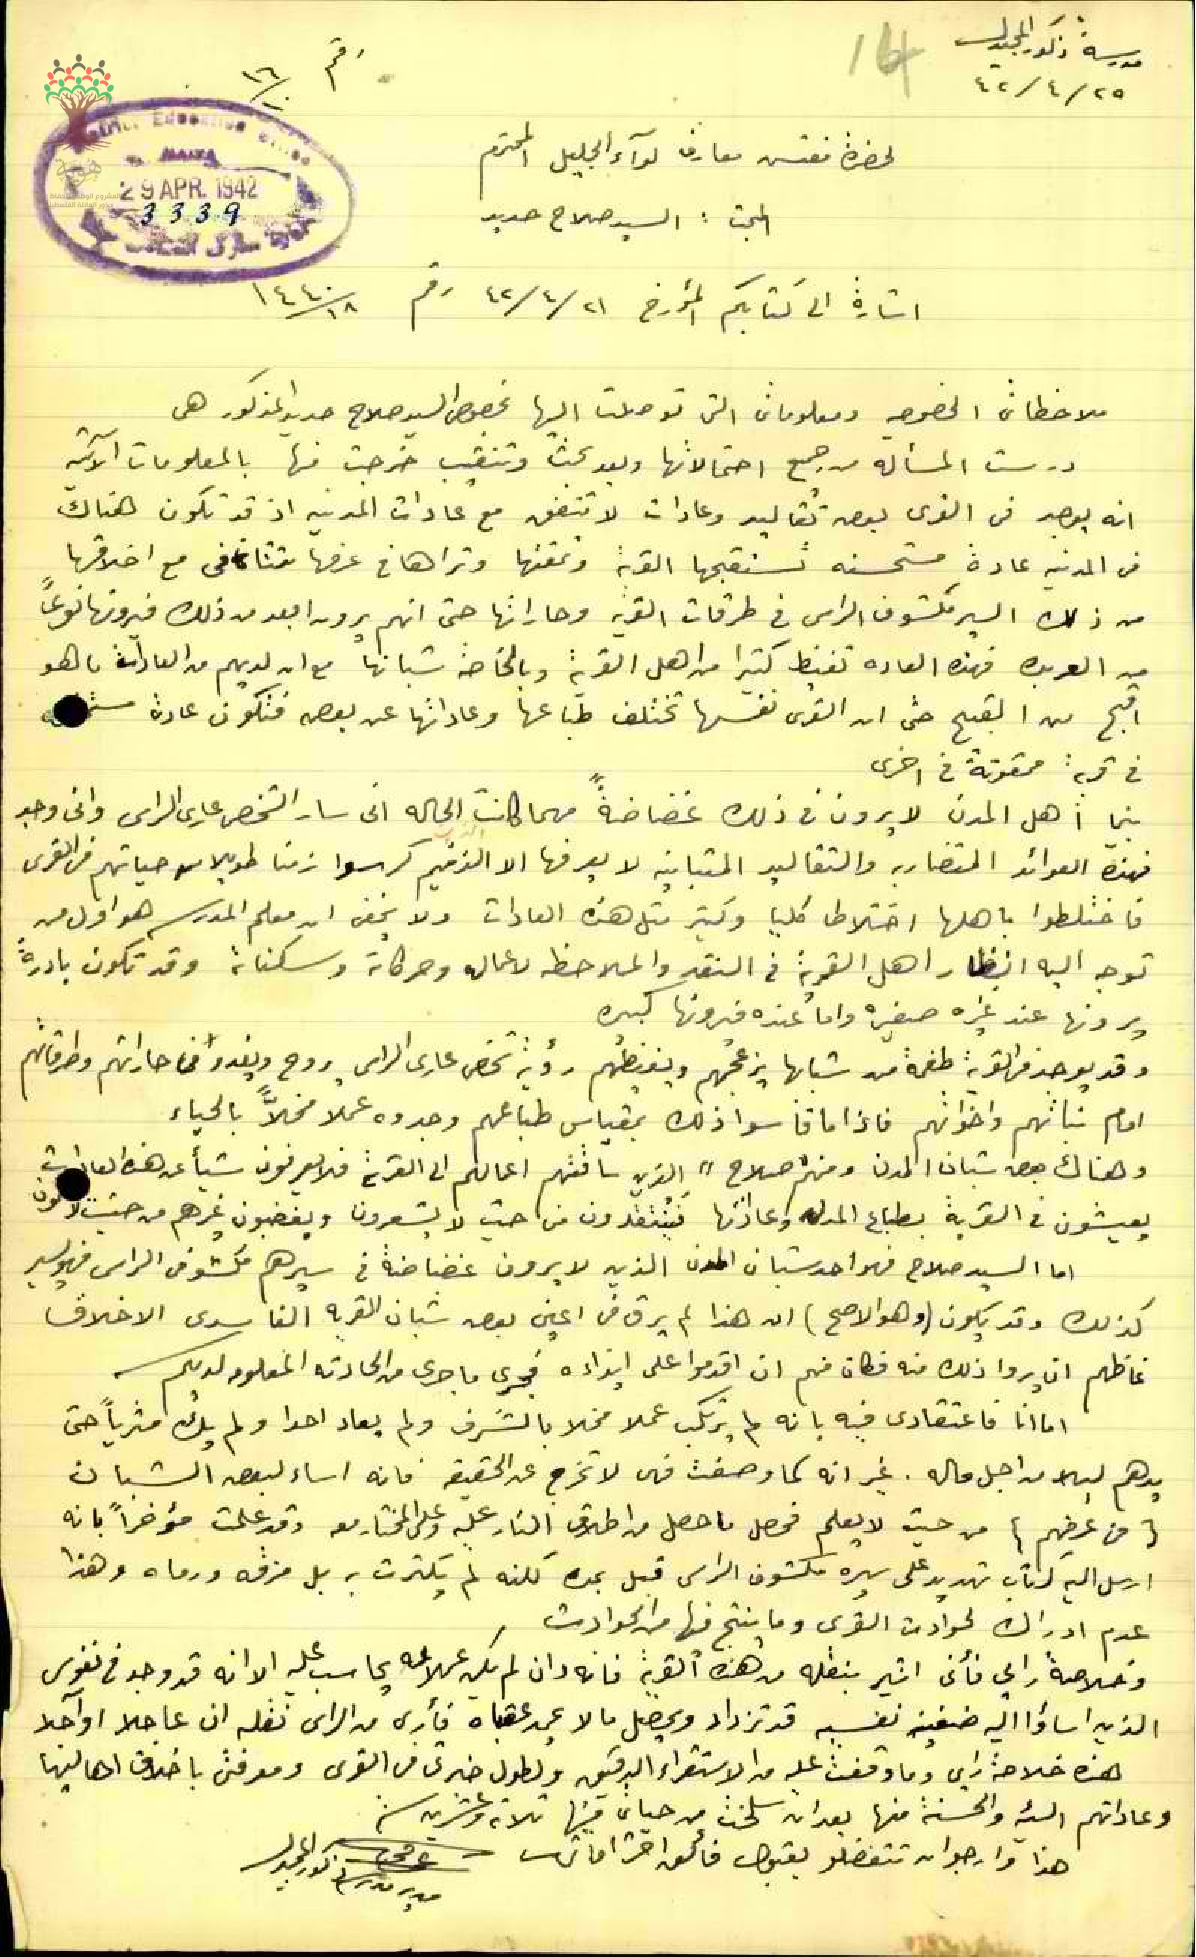 مدرسة ذكور المجيدل
٤٢/٤/٢٥
14
رقم ١٦/
District Education Office
HAIFA
29 APR. 1942
3339
لحضرة مفتش معارف لوآء الجليل المحترم
البحث : السيد صلاح حديد
اشارة الى كتابكم المؤرخ ٤٢/٤/٢١ رقم ١٤٤٠/١٨
ملاحظاتى الخصوصيه ومعلوماتى التى توصلت اليها بخصوص السيد صلاح حديد المذكور هى
درست المسألة من جميع احتمالاتها وبعد بحث وتنقيب خرجت منها بالمعلومات الآتيه
انه يوجد فى القرى بعض تقاليد وعادات لا تتفق مع عادات المدنيه اذ قد تكون هناك
فى المدنيه عادة مستحسنه تستقبحها القرية وتمقتها وتراها فى عرفها تتنافى مع اخلاقها
من ذلك السير مكشوف الراس فى طرقات القرية وحاراتها حتى انهم يرون ابعد من ذلك فيرونها نوعاً
من العربده فهذه العاده تغيظ كثيرا من اهل القرية وبالخاصة شبانها مع ان لديهم من العادات ما هو
اقبح من القبيح حتى ان القرى نفسها تختلف طباعها وعاداتها عن بعض فتكون عادة
فى قرية ممقوتة فى اخرى
بينما أهل المدن لا يرون فى ذلك غضاضةً مهما كانت الحاله انى سار الشخص عارى الراس وانى وجد
فهذه العوائد المتضاربه والتقاليد المتباينه لا يعرفها الا الذين كرسوا زمنا طويلا من حياتهم فى القرى
فاختلطوا باهلها اختلاطا كليا وكثير مثل هذه العادات ولا يخفى ان معلم المدرسه هو اول من
توجه اليه انظار اهل القرية فى النقد والملاحظه لاعماله وحركاته وسكناته وقد تكون بادرةً
يرونها عند غيره صغيره واما عنده فيرونها كبيره
وقد يوجد فى القرية طغمة من شبابها يزعجهم ويغيظهم رؤية شخص عارى الراس يروح ويغدو فى حاراتهم وطرقاتهم
امام بناتهم واخواتهم فاذا ما قاسوا ذلك بمقياس طباعهم وجدوه عملا مخلاً بالحياء
وهناك بعض شبان المدن ومنهم صلاح " الذين ساقتهم اعمالهم الى القرية فلا يعرفون شيأ عن هذه العادات
يعيشون فى القرية بطباع المدن وعاداتها فينتقدون من حيث لا يشعرون ويغضبون غيرهم من حيث لا
اما السيد صلاح فهو احد شبان المدن الذين لا يرون غضاضة فى سيرهم مكشوفى الراس فهو يسير
كذلك وقد يكون (وهو الاصح) ان هذا لم يرق فى اعين بعض شبان القريه الفاسدى الاخلاق
غاظهم ان يروا ذلك منه فكان منهم ان اقدموا على ايذاءه فجرى ما جرى من الحادثه المعلومه لديكم
اما انا فاعتقادى فيه بانه لم يرتكب عملا مخلا بالشرف ولم يعاد احدا ولم يك مثرياً حتى
يدهم ليلا من اجل ماله . غير انه كما وصفت فهى لا تخرج عن الحقيقه فانه اساء لبعض الشبان
( فى عرفهم ) من حيث لا يعلم فحصل ما حصل من اطلاق النار عليه وعلى المختار معه وقد علمت مؤخراً بانه
ارسل اليه كتاب تهديد على سيره مكشوف الراس قبل بمده لكنه لم يكترث به بل مزقه ورماه وهذا
عدم ادراك لحوادث القرى وما ينتج فيها من الحوادث
وخلاصة رايى فأنى اشير بنقله من هذه القرية فانه وان لم يكن عملا يحاسب عليه الا انه قد وجد فى نفوس
الذين اساؤا اليه ضغينه نفسيه قد تزداد ويحصل ما لا يحمد عقباه فأرى من الراى نقله ان عاجلا او آجلا
هذه خلاصة رايى وما وقفت عليه من الاستقراء الدقيق ولطول خبرتى فى القرى ومعرفتى باخلاق اهاليها
وعاداتهم السيئه والحسنة منها بعد ان سلخت من حياتى فيها ثلاثه وعشرين سنه
هذا وارجو ان تتفضلو بقبول فائق احتراماتى
مدير مدرسة ذكور المجيدل